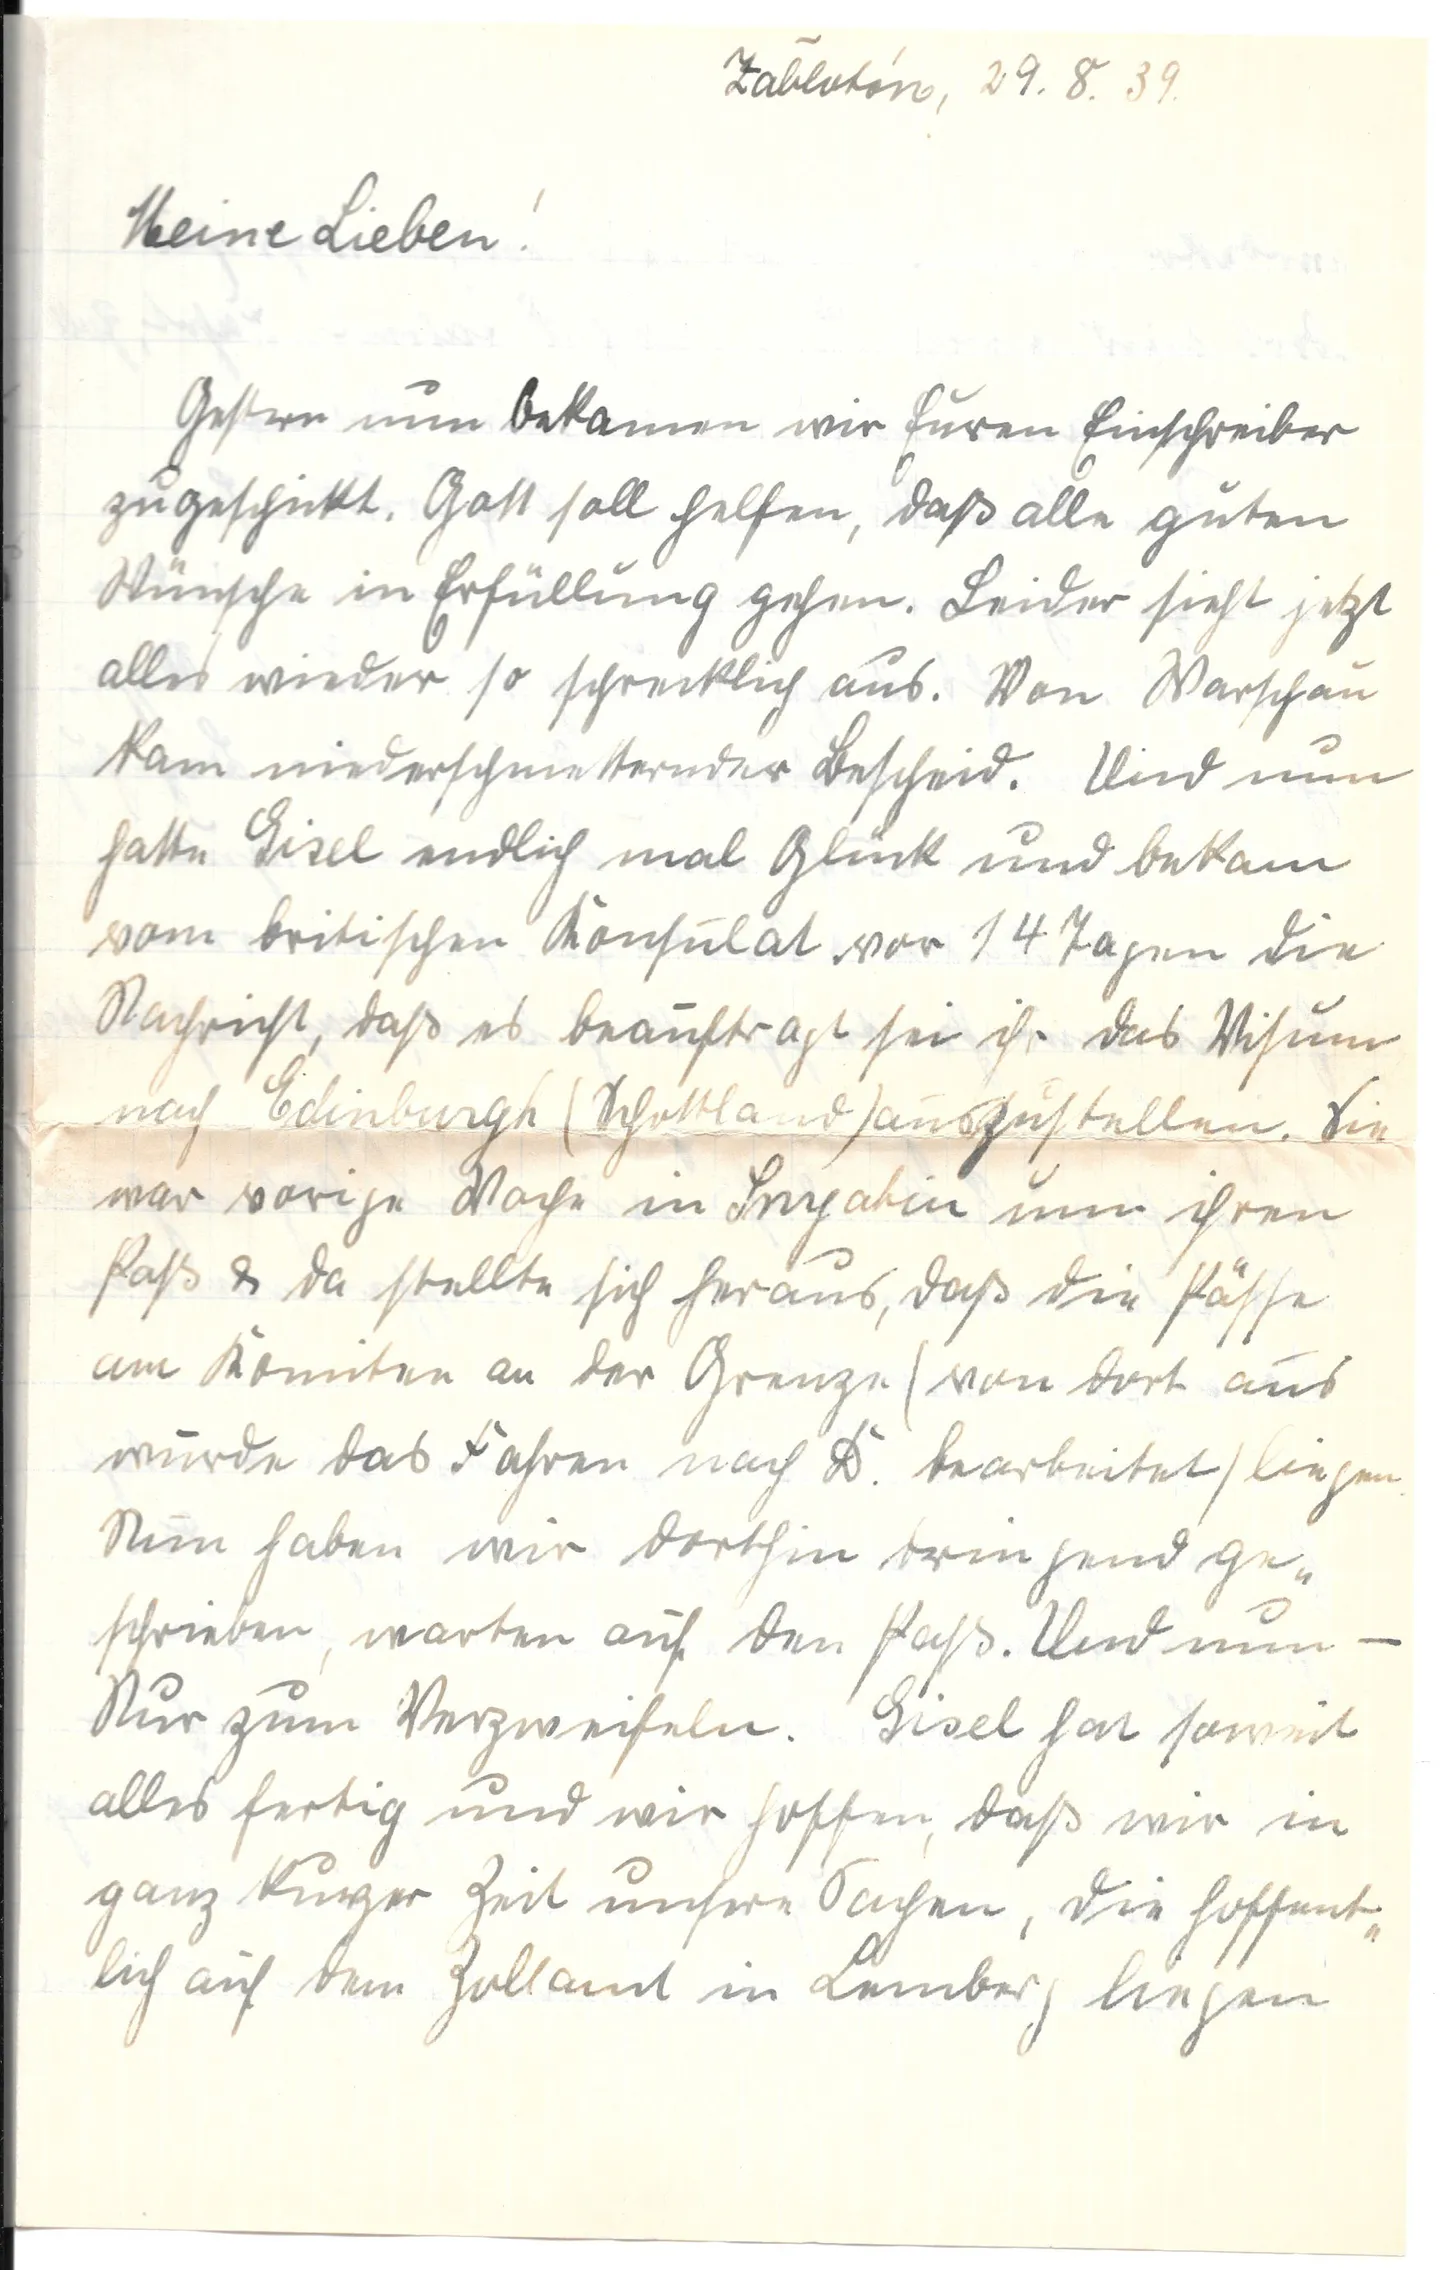 Zabłotów, 29. 8. 39.
Meine Lieben!
Gestern nun bekamen wir Euren Einschreiber
zugeschickt. Gott soll helfen, daß alle guten
Wünsche in Erfüllung gehen. Leider sieht jetzt
alles wieder so schrecklich aus. Von Warschau
kam niederschmetternder Bescheid. Und nun
hatte Gisel endlich mal Glück und bekam
vom britischen Konsulat vor 14 Tagen die
Nachricht, daß es beauftragt sei ihr das Visum
nach Edinburgh (Schottland) auszustellen. Sie
war vorige Woche in um ihren
Paß & da stellte sich heraus, daß die Pässe
am Komitee an der Grenze (von dort aus
wurde das Fahren nach D. bearbeitet) liegen.
Nun haben wir dorthin dringend ge„
schrieben, warten auf den Paß. Und nun –
Nur zum Verzweifeln. Gisel hat soweit
alles fertig und wir hoffen, daß wir in
ganz kurzer Zeit unsere Sachen, die hoffent„
lich auf dem Zollamt in Lemberg liegen